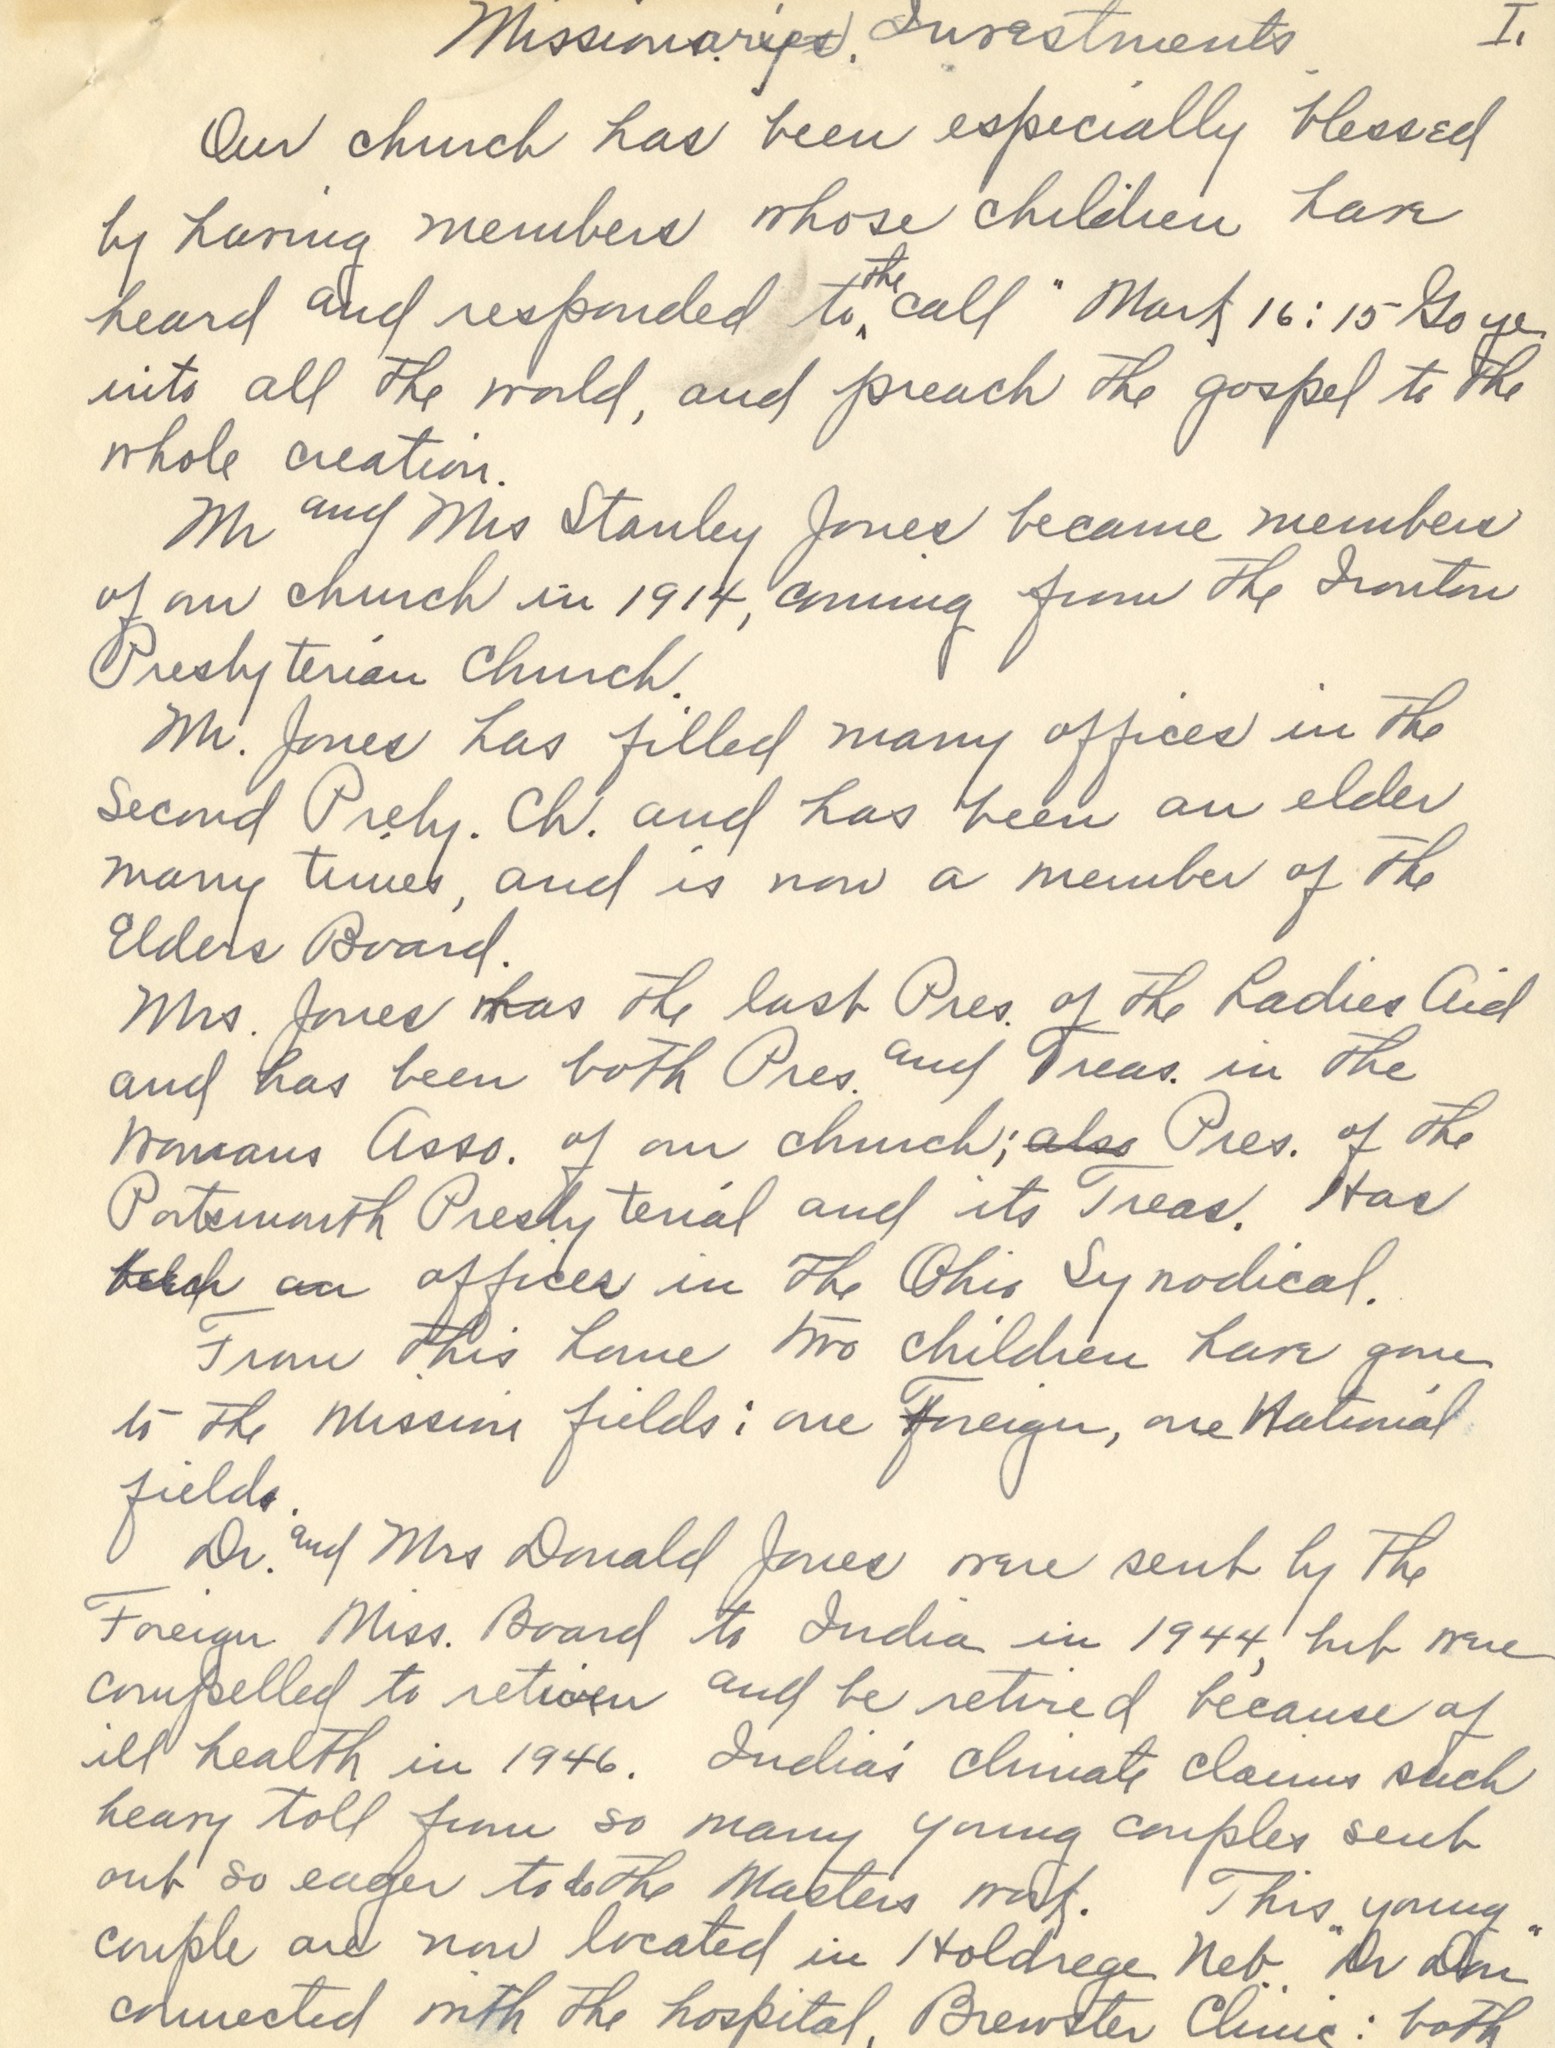 Missionary Investments I.
Our church has been especially blessed
by having members whose children have
heard and responded to the call " Mark 16:15 Go ye
into all the world, and preach the gospel to the
whole creation.
Mr and Mrs Stanley Jones became members
of our church in 1914, coming from the Ironton
Presbyterian Church.
Mr. Jones has filled many offices in the
Second Presby. Ch. and has been an elder
many times, and is now a member of the
Elders Board.
Mrs. Jones was the last Pres. of the Ladies Aid
and has been both Pres. and Treas. in the
Womans Asso. of our church; also Pres. of the
Portsmouth Presbyterial and its Treas. Has
held an offices in the Ohio Synodical.
From this home two children have gone
to the Mission fields: one Foreign, one National
fields.
Dr. and Mrs Donald Jones were sent by the
Foreign Miss. Board to India in 1944, but were
compelled to return and be retired because of
ill health in 1946. India's climate claims such
heavy toll from so many young couples sent
out so eager to do the Masters work. This young
couple are now located in Holdrege Neb. "Dr Don"
connected with the hospital, Brewster Clinic: both